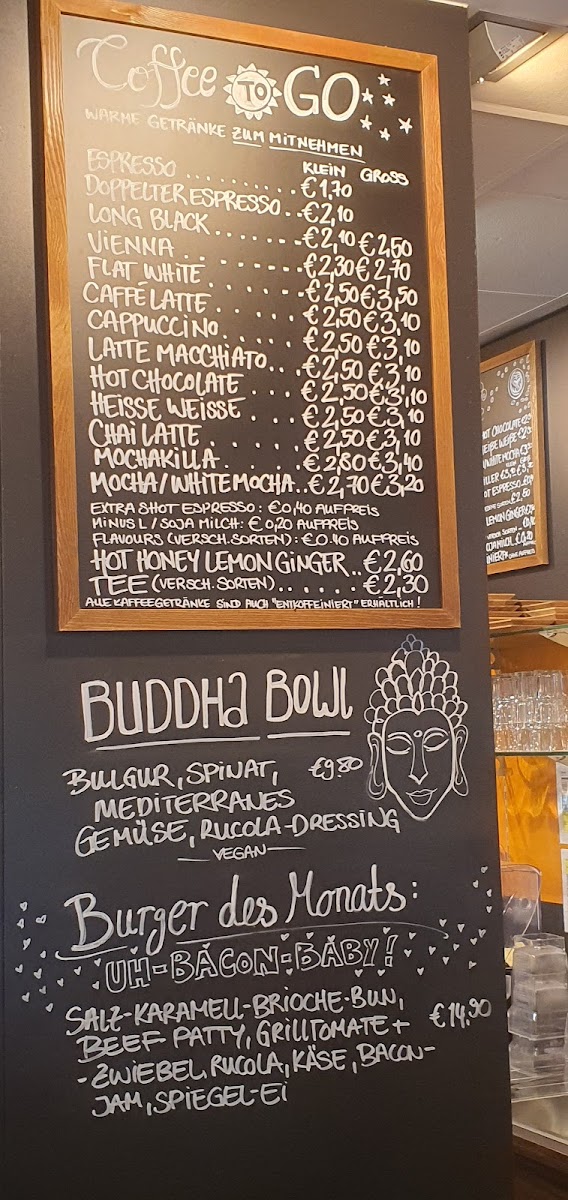 Coffee TO GO
WARME GETRÄNKE ZUM MITNEHMEN
KLEIN GROSS
ESPRESSO .......... €1,70
DOPPELTER ESPRESSO .. €2,10
LONG BLACK ....... €2,10 €2,50
VIENNA ........ €2,30 €2,70
FLAT WHITE ...... €2,50 €3,50
CAFFÈ LATTE ...... €2,50 €3,10
CAPPUCCINO ..... €2,50 €3,10
LATTE MACCHIATO ... €2,50 €3,10
HOT CHOCOLATE .... €2,50 €3,10
HEISSE WEISSE .... €2,50 €3,10
CHAI LATTE ...... €2,50 €3,10
MOCHAKILLA ..... €2,80 €3,40
MOCHA/WHITE MOCHA .. €2,70 €3,20
EXTRA SHOT ESPRESSO: €0,40 AUFPREIS
MINUS L / SOJA MILCH: € 0,20 AUFPREIS
FLAVOURS (VERSCH. SORTEN): €0.40 AUFPREIS
HOT HONEY LEMON GINGER .. €2,60
TEE (VERSCH. SORTEN) ...... €2,30
ALLE KAFFEEGETRÄNKE SIND AUCH "ENTKOFFEINIERT" ERHÄLTLICH!
BUDDHA BOWL
BULGUR, SPINAT, €9.80
MEDITERRANES
GEMÜSE, RUCOLA-DRESSING
VEGAN
Burger des Monats:
UH-BACON-BABY!
SALZ-KARAMELL-BRIOCHE-BUN, € 14,90
BEEF PATTY, GRILLTOMATE +
-ZWIEBEL, RUCOLA, KÄSE, BACON-
JAM, SPIEGEL-EI